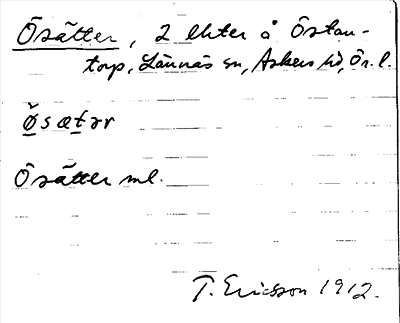 Ösätter, 2 lhter å Östan-
torp, Lännäs sn, Askers hd, Ör. l.
ø̌sætər
Ösätter ml.
T. Ericsson 1912.